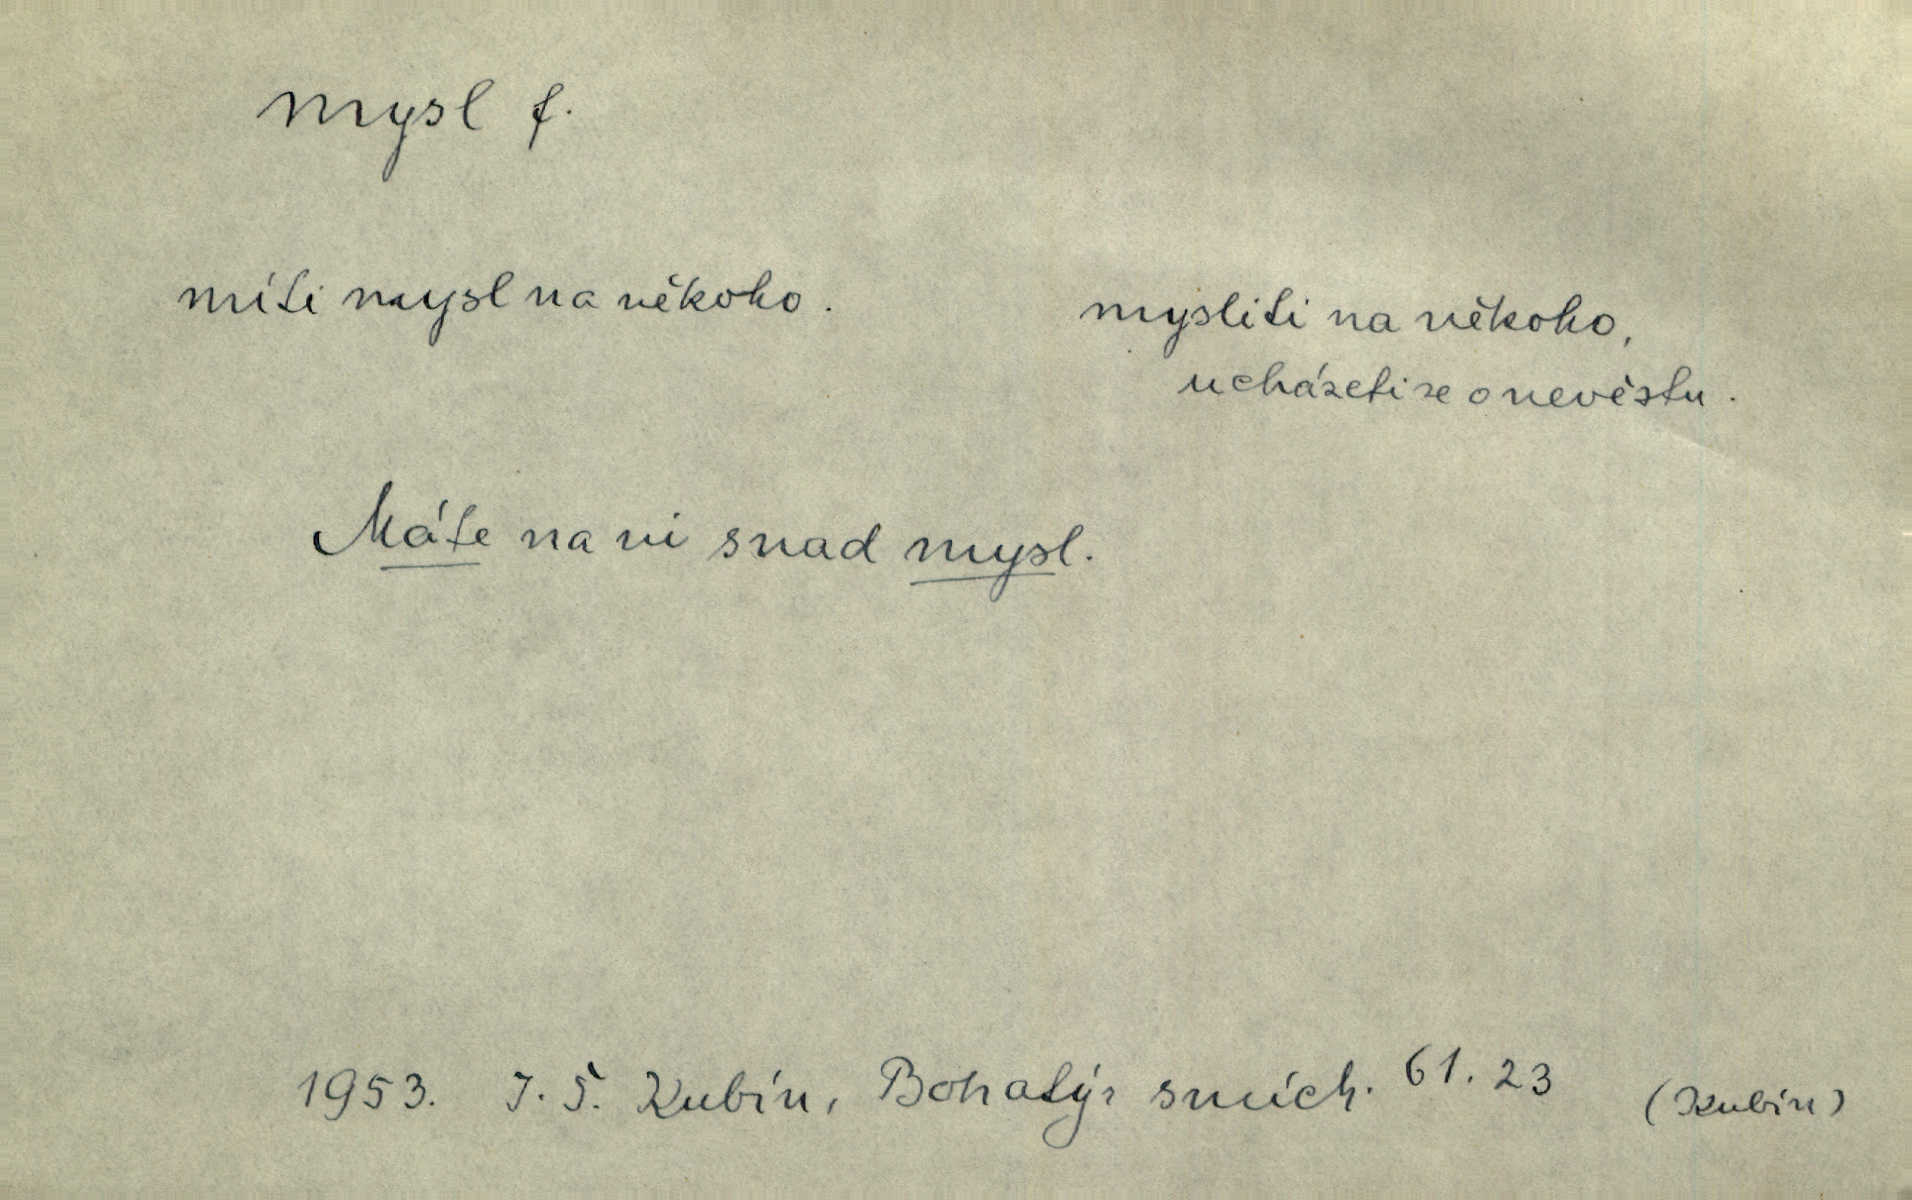 mysl f.
míti mysl na někoho.
mysliti na někoho,
ucházeti se o nevěstu.
Máte na ni snad mysl.
1953. J. Š. Kubín, Bohatýr smích. 61. 23 (Kubín)